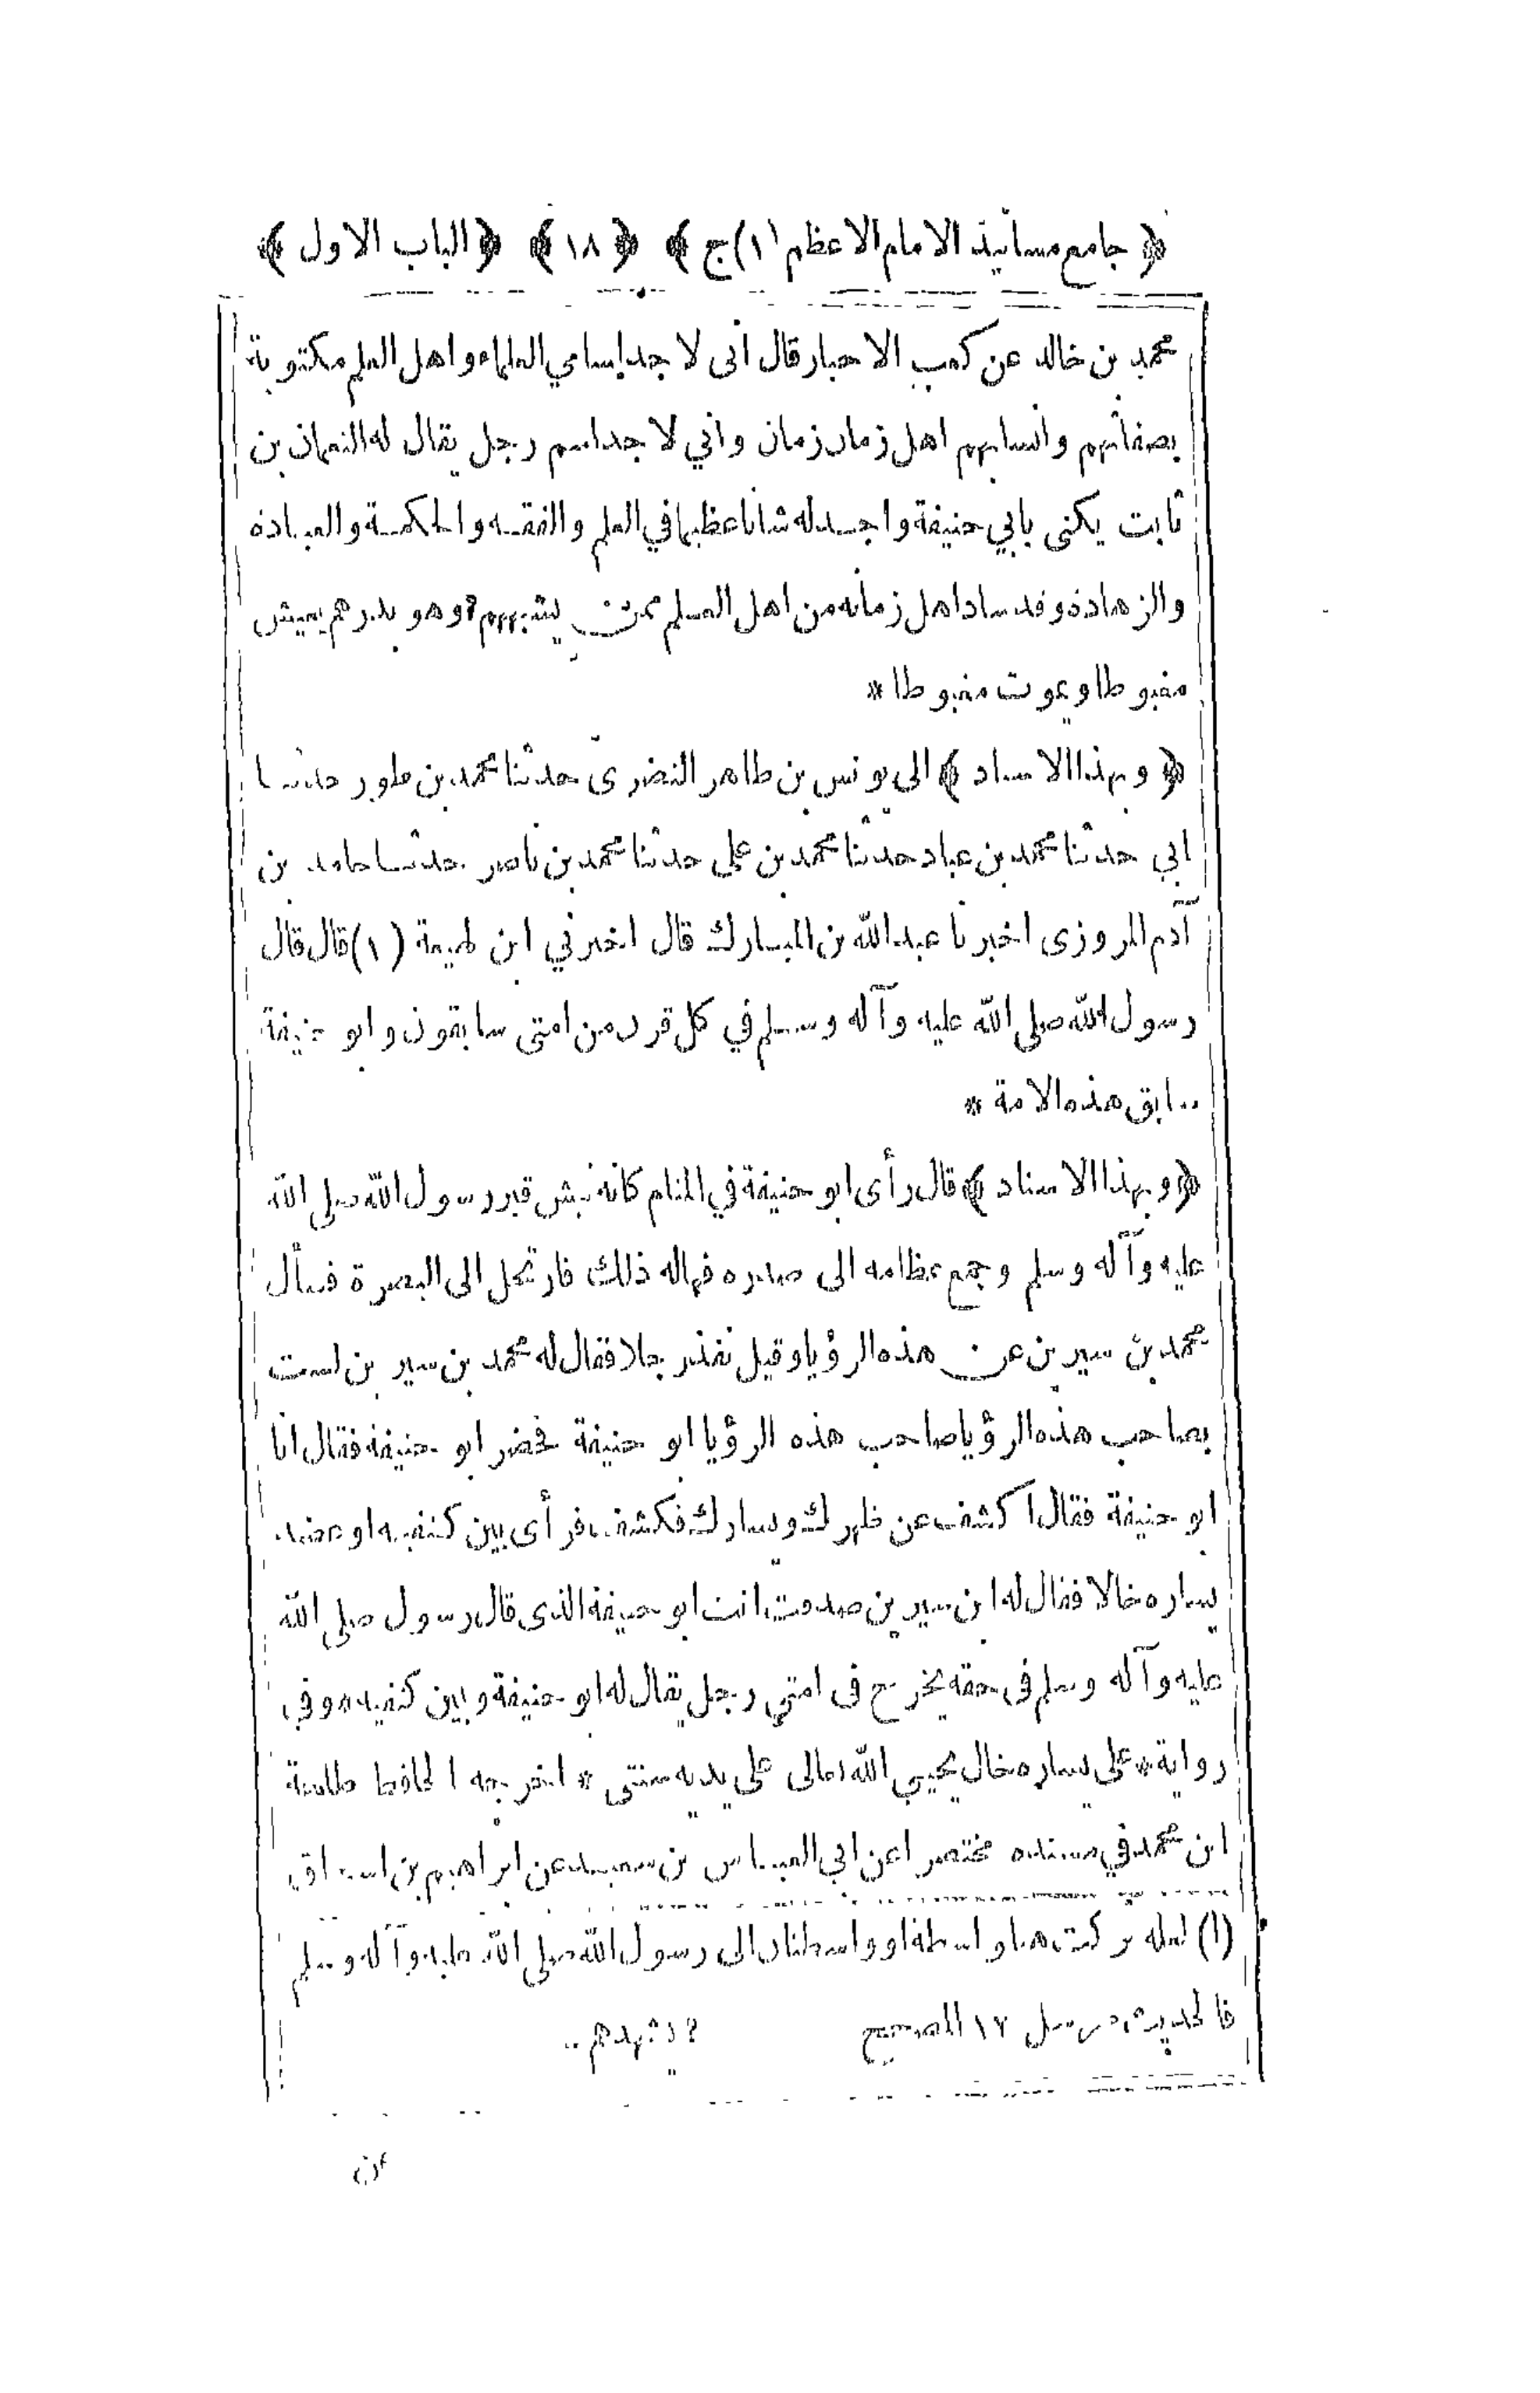 ﴿ جامع مسانيد الامام الاعظم (١) ج ﴾ ﴿ ١٨ ﴾ ﴿ الباب الاول ﴾
محمد بن خالد عن كعب الاحبار قال انى لا جد اسامي العلماء واهل العلم مكتوبة
بصفاتهم وانسابهم اهل زمان زمان واني لا جد اسم رجل يقال له النعمان بن
ثابت يكنى بابي حنيفة واجد له شانا عظيما في العلم والفقه والحكمة والعبادة
والزهادة وقد ساد اهل زمانه من اهل العلم ممن يشبههم ؟ وهو بدرهم يعيش
مغبوطا ويموت مغبوطا *
﴿ وبهذا الاسناد ﴾ الى يونس بن طاهر النضرى حدثنا محمد بن طور حدثنا
ابي حدثنا محمد بن عباد حدثنا محمد بن على حدثنا محمد بن ناصر حدثنا حامد بن
آدم المروزى اخبرنا عبد الله بن المبارك قال اخبرني ابن لهيعة (١) قال قال
رسول الله صلى الله عليه وآله وسلم في كل قرن من امتى سابقون وابو حنيفة
سابق هذه الامة *
﴿ وبهذا الاسناد ﴾ قال رأى ابو حنيفة في المنام كانه نبش قبر رسول الله صلى الله
عليه وآله وسلم وجمع عظامه الى صدره فهاله ذلك فارتحل الى البصرة فسأل
محمد بن سيرين عن هذه الرؤيا وقيل نفذ رجلا فقال له محمد بن سيرين لست
بصاحب هذه الرؤيا صاحب هذه الرؤيا ابو حنيفة فحضر ابو حنيفة فقال انا
ابو حنيفة فقال اكشف عن ظهرك ويسارك فكشف فرأى بين كتفيه او عضد
يساره خالا فقال له ابن سيرين صدقت انت ابو حنيفة الذى قال رسول صلى الله
عليه وآله وسلم فى حقه يخرج فى امتي رجل يقال له ابو حنيفة وبين كتفيه * وفي
رواية * على يساره خال يحيي الله تعالى على يديه سنتى * اخرجه الحافظ طلحة
ابن محمد في مسنده مختصرا عن ابي العباس بن سعيد عن ابراهيم بن اسحاق
(١) لعله تركت هنا واسطة او واسطتان الى رسول الله صلى الله عليه وآله وسلم
فالحديث مرسل ١٢ المصحح ؟
عن